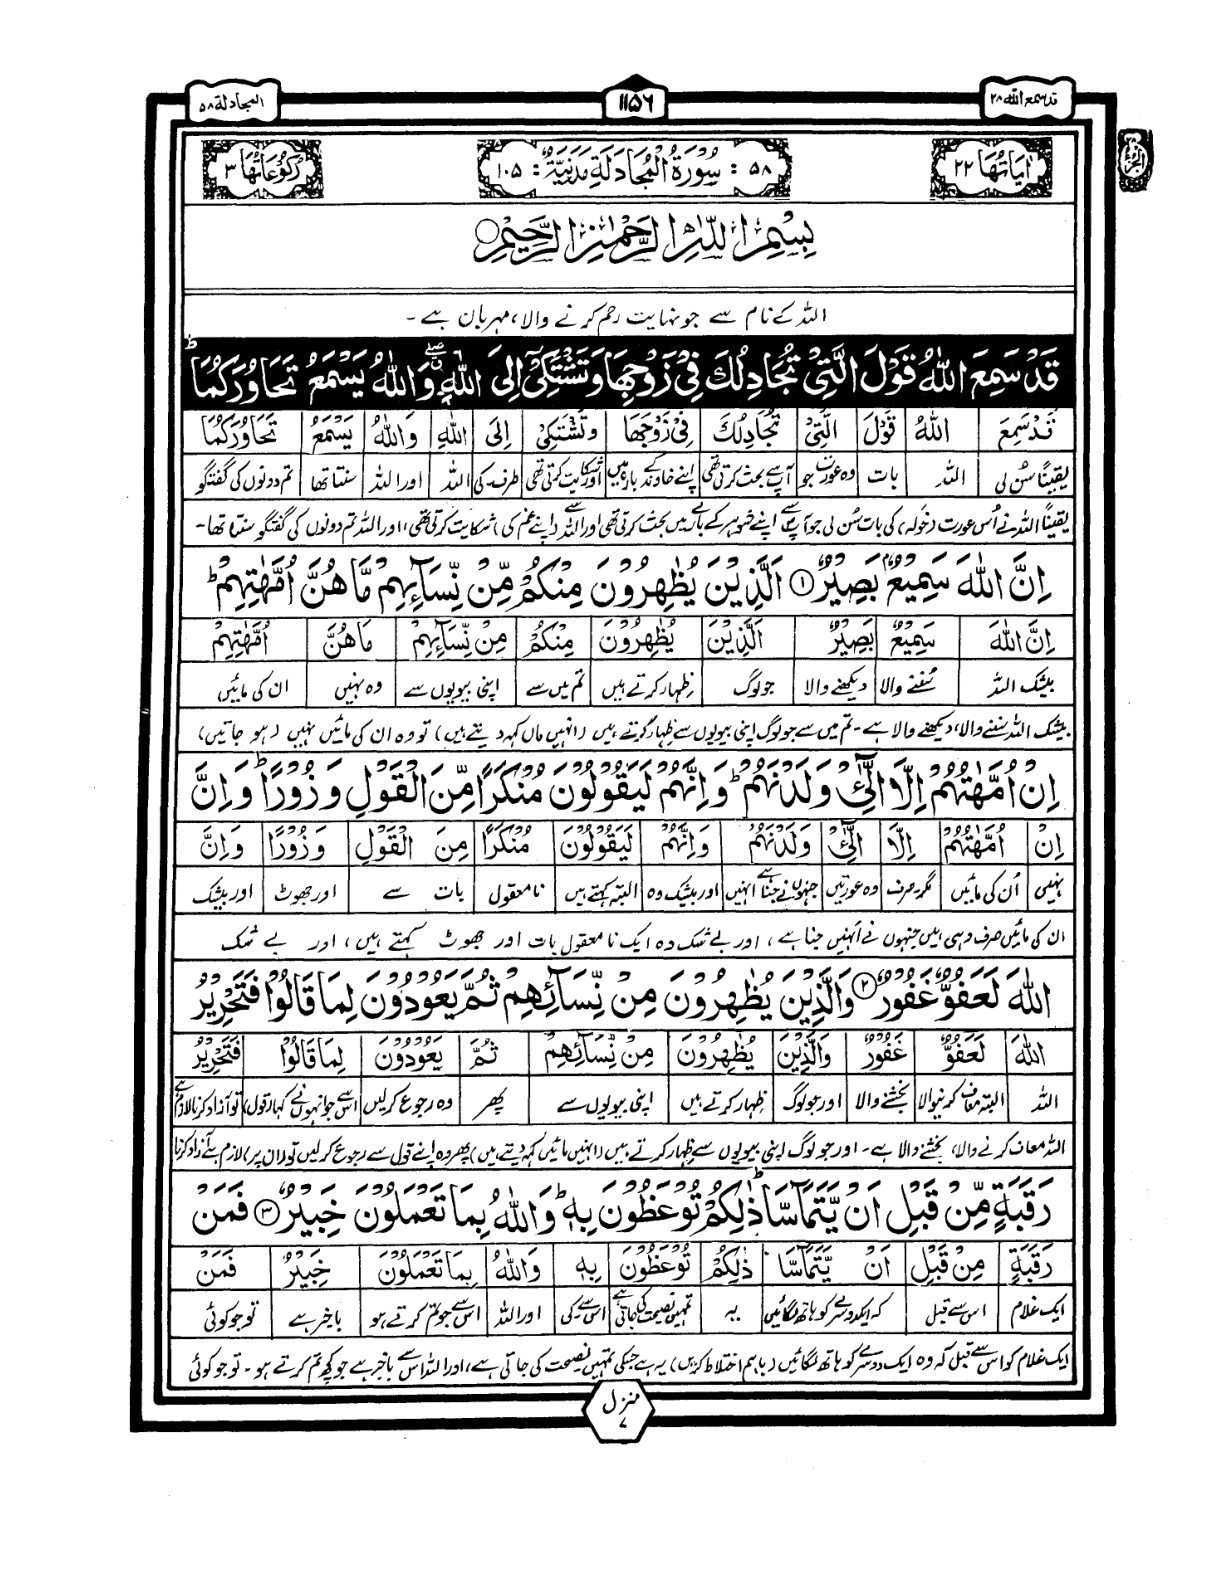 المجادلة ۵۸
۱۱۵۶
قد سمع الله ۲۸
رُكُوْعَاتُهَا ۳
۵۸ : سُوْرَةُ الْمُجَادَلَةِ مَدَنِيَّةٌ : ۱۰۵
اٰيَاتُهَا ۲۲
الجزء ۲۸
بِسْمِ اللّٰهِ الرَّحْمٰنِ الرَّحِيْمِ
اللہ کے نام سے جو نہایت رحم کرنے والا، مہربان ہے ۔
قَدْ سَمِعَ اللّٰهُ قَوْلَ الَّتِيْ تُجَادِلُكَ فِيْ زَوْجِهَا وَتَشْتَكِيْٓ اِلَى اللّٰهِ ۖ وَاللّٰهُ يَسْمَعُ تَحَاوُرَكُمَا ؕ
قَدْ سَمِعَ | اللّٰهُ | قَوْلَ | الَّتِيْ | تُجَادِلُكَ | فِيْ زَوْجِهَا | وَتَشْتَكِيْ | اِلَى | اللّٰهِ | وَاللّٰهُ | يَسْمَعُ | تَحَاوُرَكُمَا
یقیناً سُن لی | اللہ | بات | وہ عورت جو | آپ سے بحث کرتی تھی | اپنے خاوند کے بارہ میں | اور شکایت کرتی تھی | طرف۔ کی | اللہ | اور اللہ | سنتا تھا | تم دونوں کی گفتگو
یقیناً اللہ نے اُس عورت (خولہ) کی بات سُن لی جو آپ سے اپنے شوہر کے بارے میں بحث کرتی تھی اور اللہ سے (اپنے غم کی) شکایت کرتی تھی، اور اللہ تم دونوں کی گفتگو سنتا تھا۔
اِنَّ اللّٰهَ سَمِيْعٌۢ بَصِيْرٌ ۱ اَلَّذِيْنَ يُظٰهِرُوْنَ مِنْكُمْ مِّنْ نِّسَآىِٕهِمْ مَّا هُنَّ اُمَّهٰتِهِمْ ؕ
اِنَّ اللّٰهَ | سَمِيْعٌ | بَصِيْرٌ | اَلَّذِيْنَ | يُظٰهِرُوْنَ | مِنْكُمْ | مِنْ نِّسَآىِٕهِمْ | مَا هُنَّ | اُمَّهٰتِهِمْ
بیشک اللہ | سُننے والا | دیکھنے والا | جو لوگ | ظہار کرتے ہیں | تم میں سے | اپنی بیویوں سے | وہ نہیں | ان کی مائیں
بیشک اللہ سننے والا، دیکھنے والا ہے۔ تم میں سے جو لوگ اپنی بیویوں سے ظہار کرتے ہیں (انہیں ماں کہہ دیتے ہیں) تو وہ ان کی مائیں نہیں (ہو جاتیں)
اِنْ اُمَّهٰتُهُمْ اِلَّا الّٰٓـِٔيْ وَلَدْنَهُمْ ؕ وَاِنَّهُمْ لَيَقُوْلُوْنَ مُنْكَرًا مِّنَ الْقَوْلِ وَزُوْرًا ؕ وَاِنَّ
اِنْ | اُمَّهٰتُهُمْ | اِلَّا | الّٰٓـِٔيْ | وَلَدْنَهُمْ | وَاِنَّهُمْ | لَيَقُوْلُوْنَ | مُنْكَرًا | مِنَ الْقَوْلِ | وَزُوْرًا | وَاِنَّ
نہیں | اُن کی مائیں | مگر۔ صرف | وہ عورتیں | جنہوں نے جنا ہے انہیں | اور بیشک وہ | البتہ کہتے ہیں | نا معقول | بات سے | اور جھوٹ | اور بیشک
ان کی مائیں صرف وہی ہیں جنہوں نے اُنہیں جنا ہے، اور بے شک وہ ایک نا معقول بات اور جھوٹ کہتے ہیں، اور بے شک
اللّٰهَ لَعَفُوٌّ غَفُوْرٌ ۲ وَالَّذِيْنَ يُظٰهِرُوْنَ مِنْ نِّسَآىِٕهِمْ ثُمَّ يَعُوْدُوْنَ لِمَا قَالُوْا فَتَحْرِيْرُ
اللّٰهَ | لَعَفُوٌّ | غَفُوْرٌ | وَالَّذِيْنَ | يُظٰهِرُوْنَ | مِنْ نِّسَآىِٕهِمْ | ثُمَّ | يَعُوْدُوْنَ | لِمَا قَالُوْا | فَتَحْرِيْرُ
اللہ | البتہ معاف کرنیوالا | بخشنے والا | اور جو لوگ | ظہار کرتے ہیں | اپنی بیویوں سے | پھر | وہ رجوع کرلیں | اس سے جو انہوں نے کہا (قول) | تو آزاد کرنا لازم ہے
اللہ معاف کرنے والا، بخشنے والا ہے۔ اور جو لوگ اپنی بیویوں سے ظہار کرتے ہیں (انہیں مائیں کہہ دیتے ہیں) پھر وہ اپنے قول سے رجوع کرلیں تو (ان پر) لازم ہے آزاد کرنا
رَقَبَةٍ مِّنْ قَبْلِ اَنْ يَّتَمَآسَّا ؕ ذٰلِكُمْ تُوْعَظُوْنَ بِهٖ ؕ وَاللّٰهُ بِمَا تَعْمَلُوْنَ خَبِيْرٌ ۳ فَمَنْ
رَقَبَةٍ | مِنْ قَبْلِ | اَنْ يَّتَمَآسَّا | ذٰلِكُمْ | تُوْعَظُوْنَ | بِهٖ | وَاللّٰهُ | بِمَا تَعْمَلُوْنَ | خَبِيْرٌ | فَمَنْ
ایک غلام | اس سے قبل | کہ ایک دوسرے کو ہاتھ لگائیں | یہ | تمہیں نصیحت کی جاتی ہے | اس سے۔ کی | اور اللہ | اس سے جو تم کرتے ہو | با خبر ہے | تو جو کوئی
ایک غلام کو اس سے قبل کہ وہ ایک دوسرے کو ہاتھ لگائیں (باہم اختلاط کریں) یہ ہے جسکی تمہیں نصیحت کی جاتی ہے، اور اللہ اس سے باخبر ہے جو کچھ تم کرتے ہو ۔ تو جو کوئی
منزل ۷